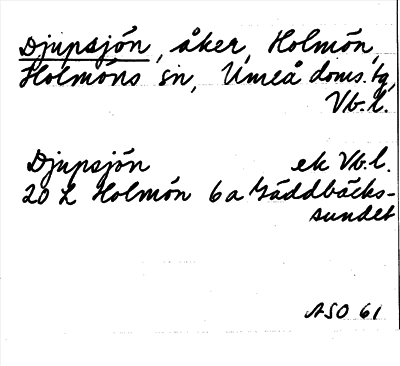 Djupsjön, åker, Holmön,
Holmöns sn, Umeå doms. tg,
Vb.l.
Djupsjön ek Vb.l.
20 L Holmön 6a Gäddbäcks-
sundet
ASO 61